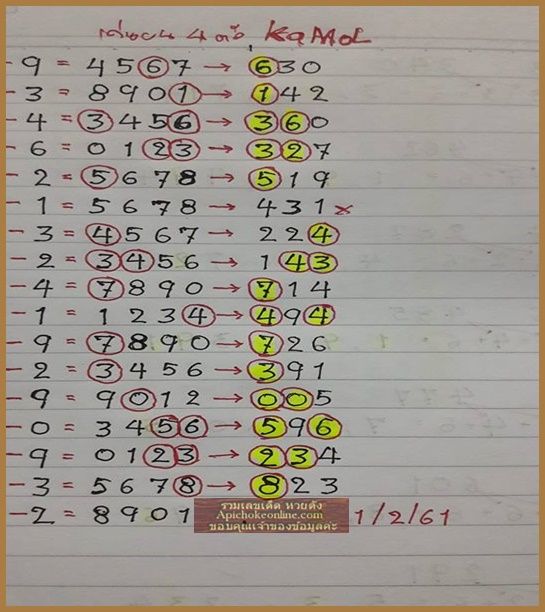 เด่นบน 4 ตัว KaMoL
- 9 = 4567 → 630
- 3 = 8901 → 142
- 4 = 3456 → 360
- 6 = 0123 → 327
- 2 = 5678 → 519
- 1 = 5678 → 431 x
- 3 = 4567 → 224
- 2 = 3456 → 143
- 4 = 7890 → 714
- 1 = 1234 → 494
- 9 = 7890 → 726
- 2 = 3456 → 391
- 9 = 9012 → 005
- 0 = 3456 → 596
- 9 = 0123 → 234
- 3 = 5678 → 823
- 2 = 8901 1/2/61
รวมเลขเด็ด หวยดัง
Apichokeonline.com
ขอบคุณเจ้าของข้อมูลค่ะ